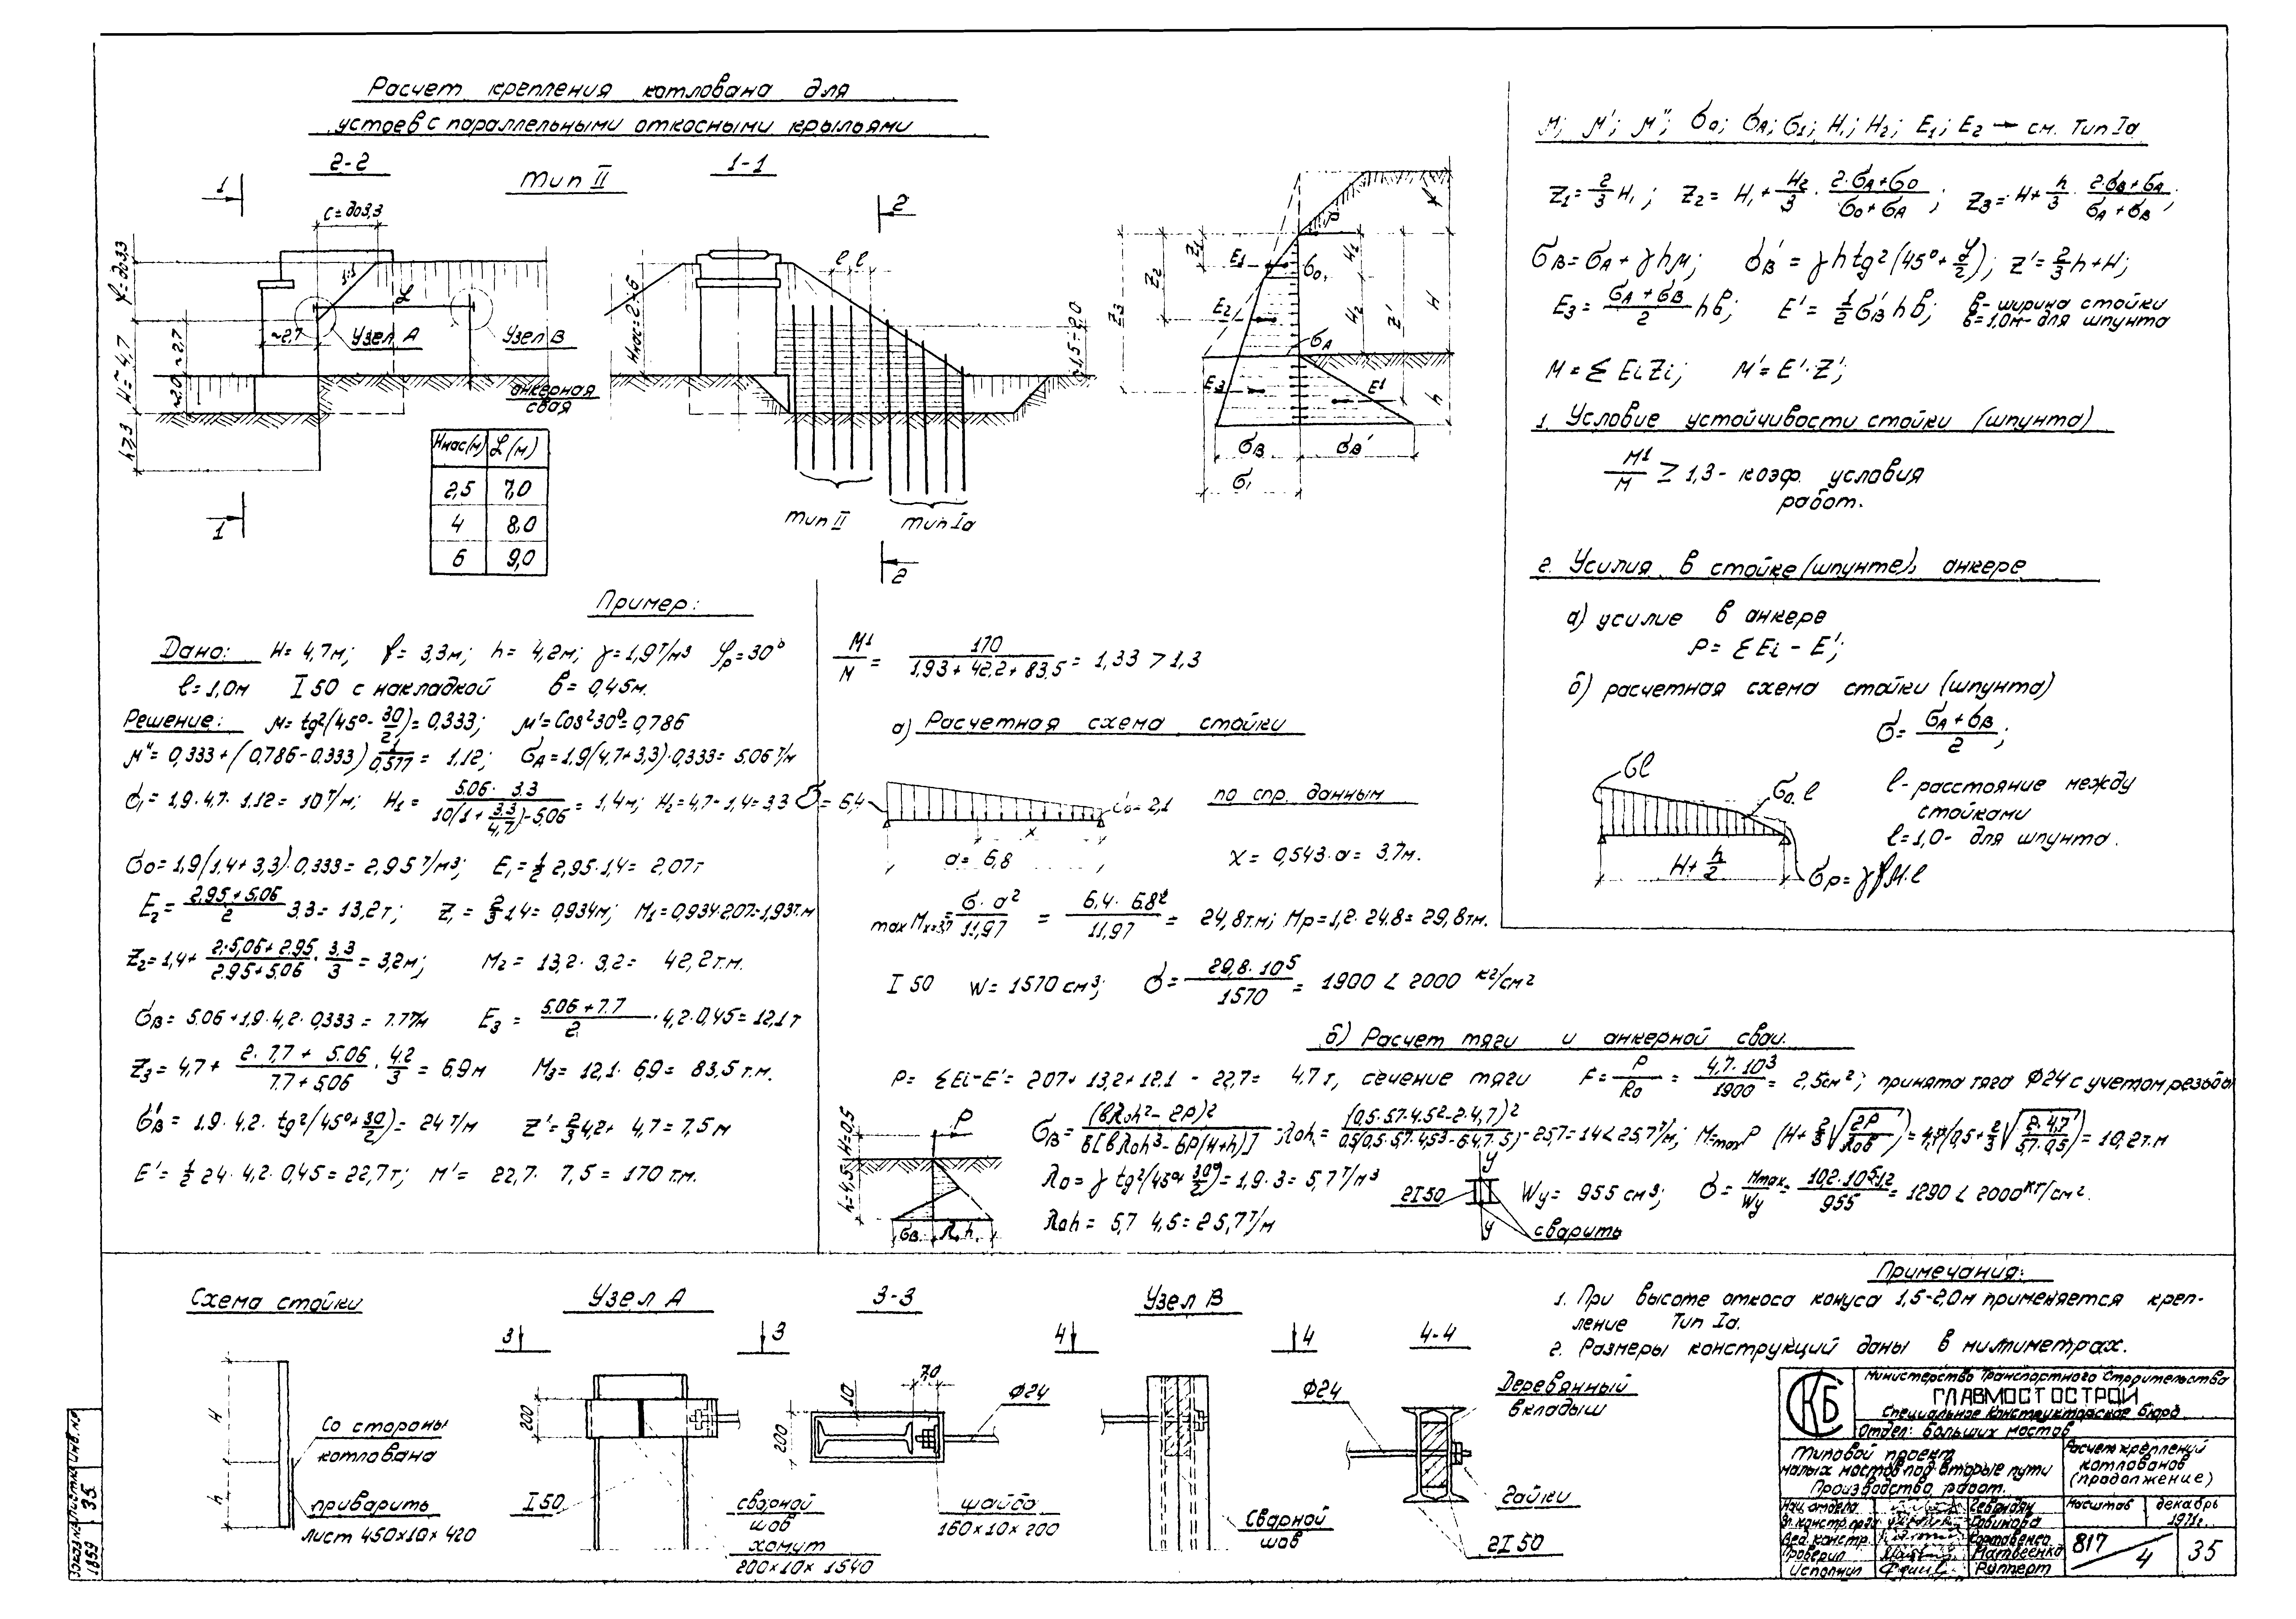 Расчет крепления котлована для
устоев с параллельными откосными крыльями
2-2
Тип II
1-1
1
1
2
2
c=до3,3
f=до3,3
1:1
L
Узел А
Узел В
~2,7
~2,7
~2,0
H=~4,7
h≥3
анкерная
свая
Hнас(м) L(м)
2,5 7,0
4 8,0
6 9,0
Hнас=2÷6
l l
~1,5÷2,0
тип II
тип Iа
Z1
Z2
Z3
E1
E2
E3
E'
σ0
σА
H1
H2
Z'
H
h
σВ
σВ'
σ1
М; М'; М"; σ0; σА; σ1; H1; H2; E1; E2 → см. Тип Iа
Z1=2/3 H1; Z2= H1+H2/3 · (2·σА+σ0)/(σ0+σА); Z3=H+h/3 · (2·σВ+σА)/(σА+σВ);
σВ=σА+γhм; σВ'=γh tg²(45°+φ/2); Z'=2/3 h+H;
E3=(σА+σВ)/2 hв; E'=1/2 σВ' hв; в- ширина стойки
в=1,0м- для шпунта
М=ΣEiZi; М'=E'·Z';
1. Условие устойчивости стойки (шпунта)
М¹/М ≥ 1,3- коэф. условия
работ.
2. Усилия в стойке(шпунте), анкере
а) усилие в анкере
P=ΣEi-E';
б) расчетная схема стойки (шпунта)
σ=(σА+σВ)/2;
σl
σ0·l
l- расстояние между
стойками
l=1,0- для шпунта.
H+h/2
σр=γfм·l
Пример:
Дано: H=4,7м; f=3,3м; h=4,2м; γ=1,9т/м³ φр=30°
l=1,0м I50 с накладкой в=0,45м.
Решение: м=tg²(45°-30/2)=0,333; м'=Cos²30°=0,786
м"=0,333+(0,786-0,333)1/0,577=1,12; σА=1,9(4,7+3,3)·0,333=5,06т/м
σ1=1,9·4,7·1,12=10т/м; H1=5,06·3,3/(10(1+3,3/4,7)-5,06)=1,4м; H2=4,7-1,4=3,3
σ0=1,9(1,4+3,3)·0,333=2,95т/м³; E1=1/2 2,95·1,4=2,07т
E2=(2,95+5,06)/2 3,3=13,2т; Z1=2/3 1,4=0,934м; М1=0,934·2,07=1,93т.м
Z2=1,4+(2·5,06+2,95)/(2,95+5,06)·3,3/3=3,2м; М2=13,2·3,2=42,2т.м.
σВ=5,06+1,9·4,2·0,333=7,7т/м E3=(5,06+7,7)/2·4,2·0,45=12,1т
Z3=4,7+(2·7,7+5,06)/(7,7+5,06)·4,2/3=6,9м М3=12,1·6,9=83,5т.м.
σВ'=1,9·4,2·tg²(45°+30/2)=24т/м Z'=2/3 4,2+4,7=7,5м
E'=1/2 24·4,2·0,45=22,7т; М'=22,7·7,5=170т.м.
М¹/М=170/(1,93+42,2+83,5)=1,33>1,3
а) Расчетная схема стойки
σ=6,4
σ0=2,1
x
а=6,8
по спр. данным
x=0,543·а=3,7м.
max Мx=3,7=σ·а²/11,97=6,4·6,8²/11,97=24,8т.м; Мр=1,2·24,8=29,8тм.
I50 W=1570см³; σ=29,8·10⁵/1570=1900<2000 кг/см²
б) Расчет тяги и анкерной сваи.
P=ΣEi-E'=2,07+13,2+12,1-22,7=4,7т, сечение тяги F=P/R0=4,7·10³/1900=2,5см²; принята тяга Ф24 с учетом резьбы
P
H=0,5
h=4,5
σВ
λ0h
σВ=(вλ0h²-2P)²/в[вλ0h³-6P(H+h)]-λ0h=(0,5·5,7·4,5²-2·4,7)²/0,5(0,5·5,7·4,5³-6·4,7·5)-25,7=14<25,7т/м; М=maxP (H+2/3√(2P/λ0в))=4,7(0,5+2/3√(2·4,7/5,7·0,5))=10,2т.м
λ0=γ tg²(45°+30°/2)=1,9·3=5,7т/м³
λ0h=5,7 4,5=25,7т/м
2I50
y
y
сварить
Wу=955см³; σ=Мmax/Wу=10,2·10⁵·1,2/955=1290<2000кг/см².
Схема стойки
H
h
Со стороны
котлована
приварить
лист 450×10×420
Узел А
3
3
200
I50
сварной
шов
хомут
200×10×1540
3-3
70
10
200
Ф24
шайба
160×10×200
Узел В
4
4
Сварной
шов
4-4
Ф24
Деревянный
вкладыш
гайки
2I50
Примечания:
1. При высоте откоса конуса 1,5-2,0м применяется креп-
ление Тип Iа.
2. Размеры конструкций даны в миллиметрах.
СКБ
Министерство Транспортного Строительства
ГЛАВМОСТОСТРОЙ
Специальное Конструкторское бюро
Отдел: больших мостов
Типовой проект
малых мостов под вторые пути
Производство работ.
Расчет креплений
котлованов
(продолжение)
Нач. отдела
Гл. констр. пр.
Вед. констр.
Проверил Матвеенко
Исполнил Рипперт
Масштаб
декабрь
1971г.
817/4
35
Заказ № 1859
Листка 35
Инв. №